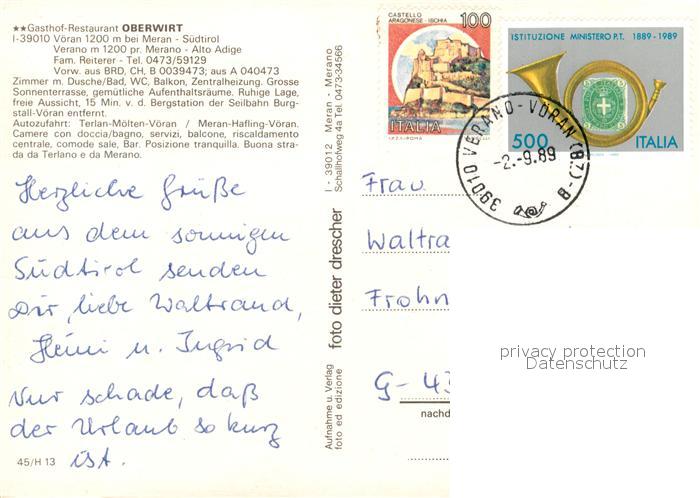 ★★Gasthof-Restaurant OBERWIRT
I-39010 Vöran 1200 m bei Meran - Südtirol
Verano m 1200 pr. Merano - Alto Adige
Fam. Reiterer - Tel. 0473/59129
Vorw. aus BRD, CH, B 0039473; aus A 040473
Zimmer m. Dusche/Bad, WC, Balkon, Zentralheizung. Grosse
Sonnenterrasse, gemütliche Aufenthaltsräume. Ruhige Lage,
freie Aussicht, 15 Min. v. d. Bergstation der Seilbahn Burg-
stall-Vöran entfernt.
Autozufahrt: Terlan-Mölten-Vöran / Meran-Hafling-Vöran.
Camere con doccia/bagno, servizi, balcone, riscaldamento
centrale, comode sale, Bar. Posizione tranquilla. Buona stra-
da da Terlano e da Merano.
Herzliche Grüße
aus dem sonnigen
Südtirol senden
Dir, liebe Waltraud,
Heini u. Ingrid
Nur schade, daß
der Urlaub so kurz
ist.
45/H 13
Aufnahme u. Verlag
foto ed edizione
foto dieter drescher
I - 39012 Meran - Merano
Schallhofweg 4a Tel. 0473-34566
CASTELLO
ARAGONESE - ISCHIA
100
ITALIA
I.P.Z.S.-ROMA
ISTITUZIONE MINISTERO P.T. 1889-1989
500
ITALIA
39010 VERANO-VÖRAN (BZ)-B
-2.-9.89
Frau
Waltra
Frohn
G- 43
nachd
privacy protection
Datenschutz